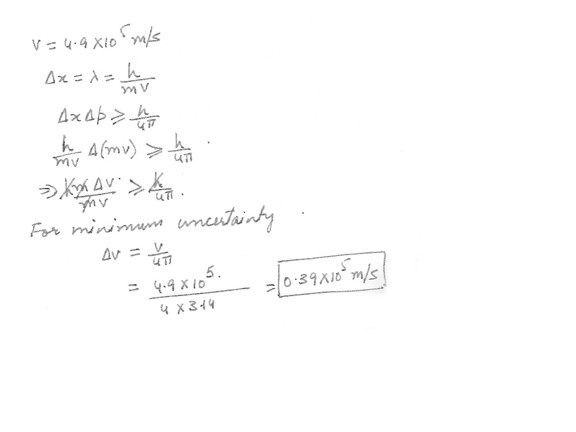 v = 4.9 × 10^5 m/s
Δx = λ = h/mv
Δx Δp ≥ h/4π
h/mv Δ(mv) ≥ h/4π.
⇒ hm Δv/mv ≥ h/4π.
For minimum uncertainty
Δv = v/4π
= 4.9 × 10^5. / 4 × 3.14 = 0.39 × 10^5 m/s